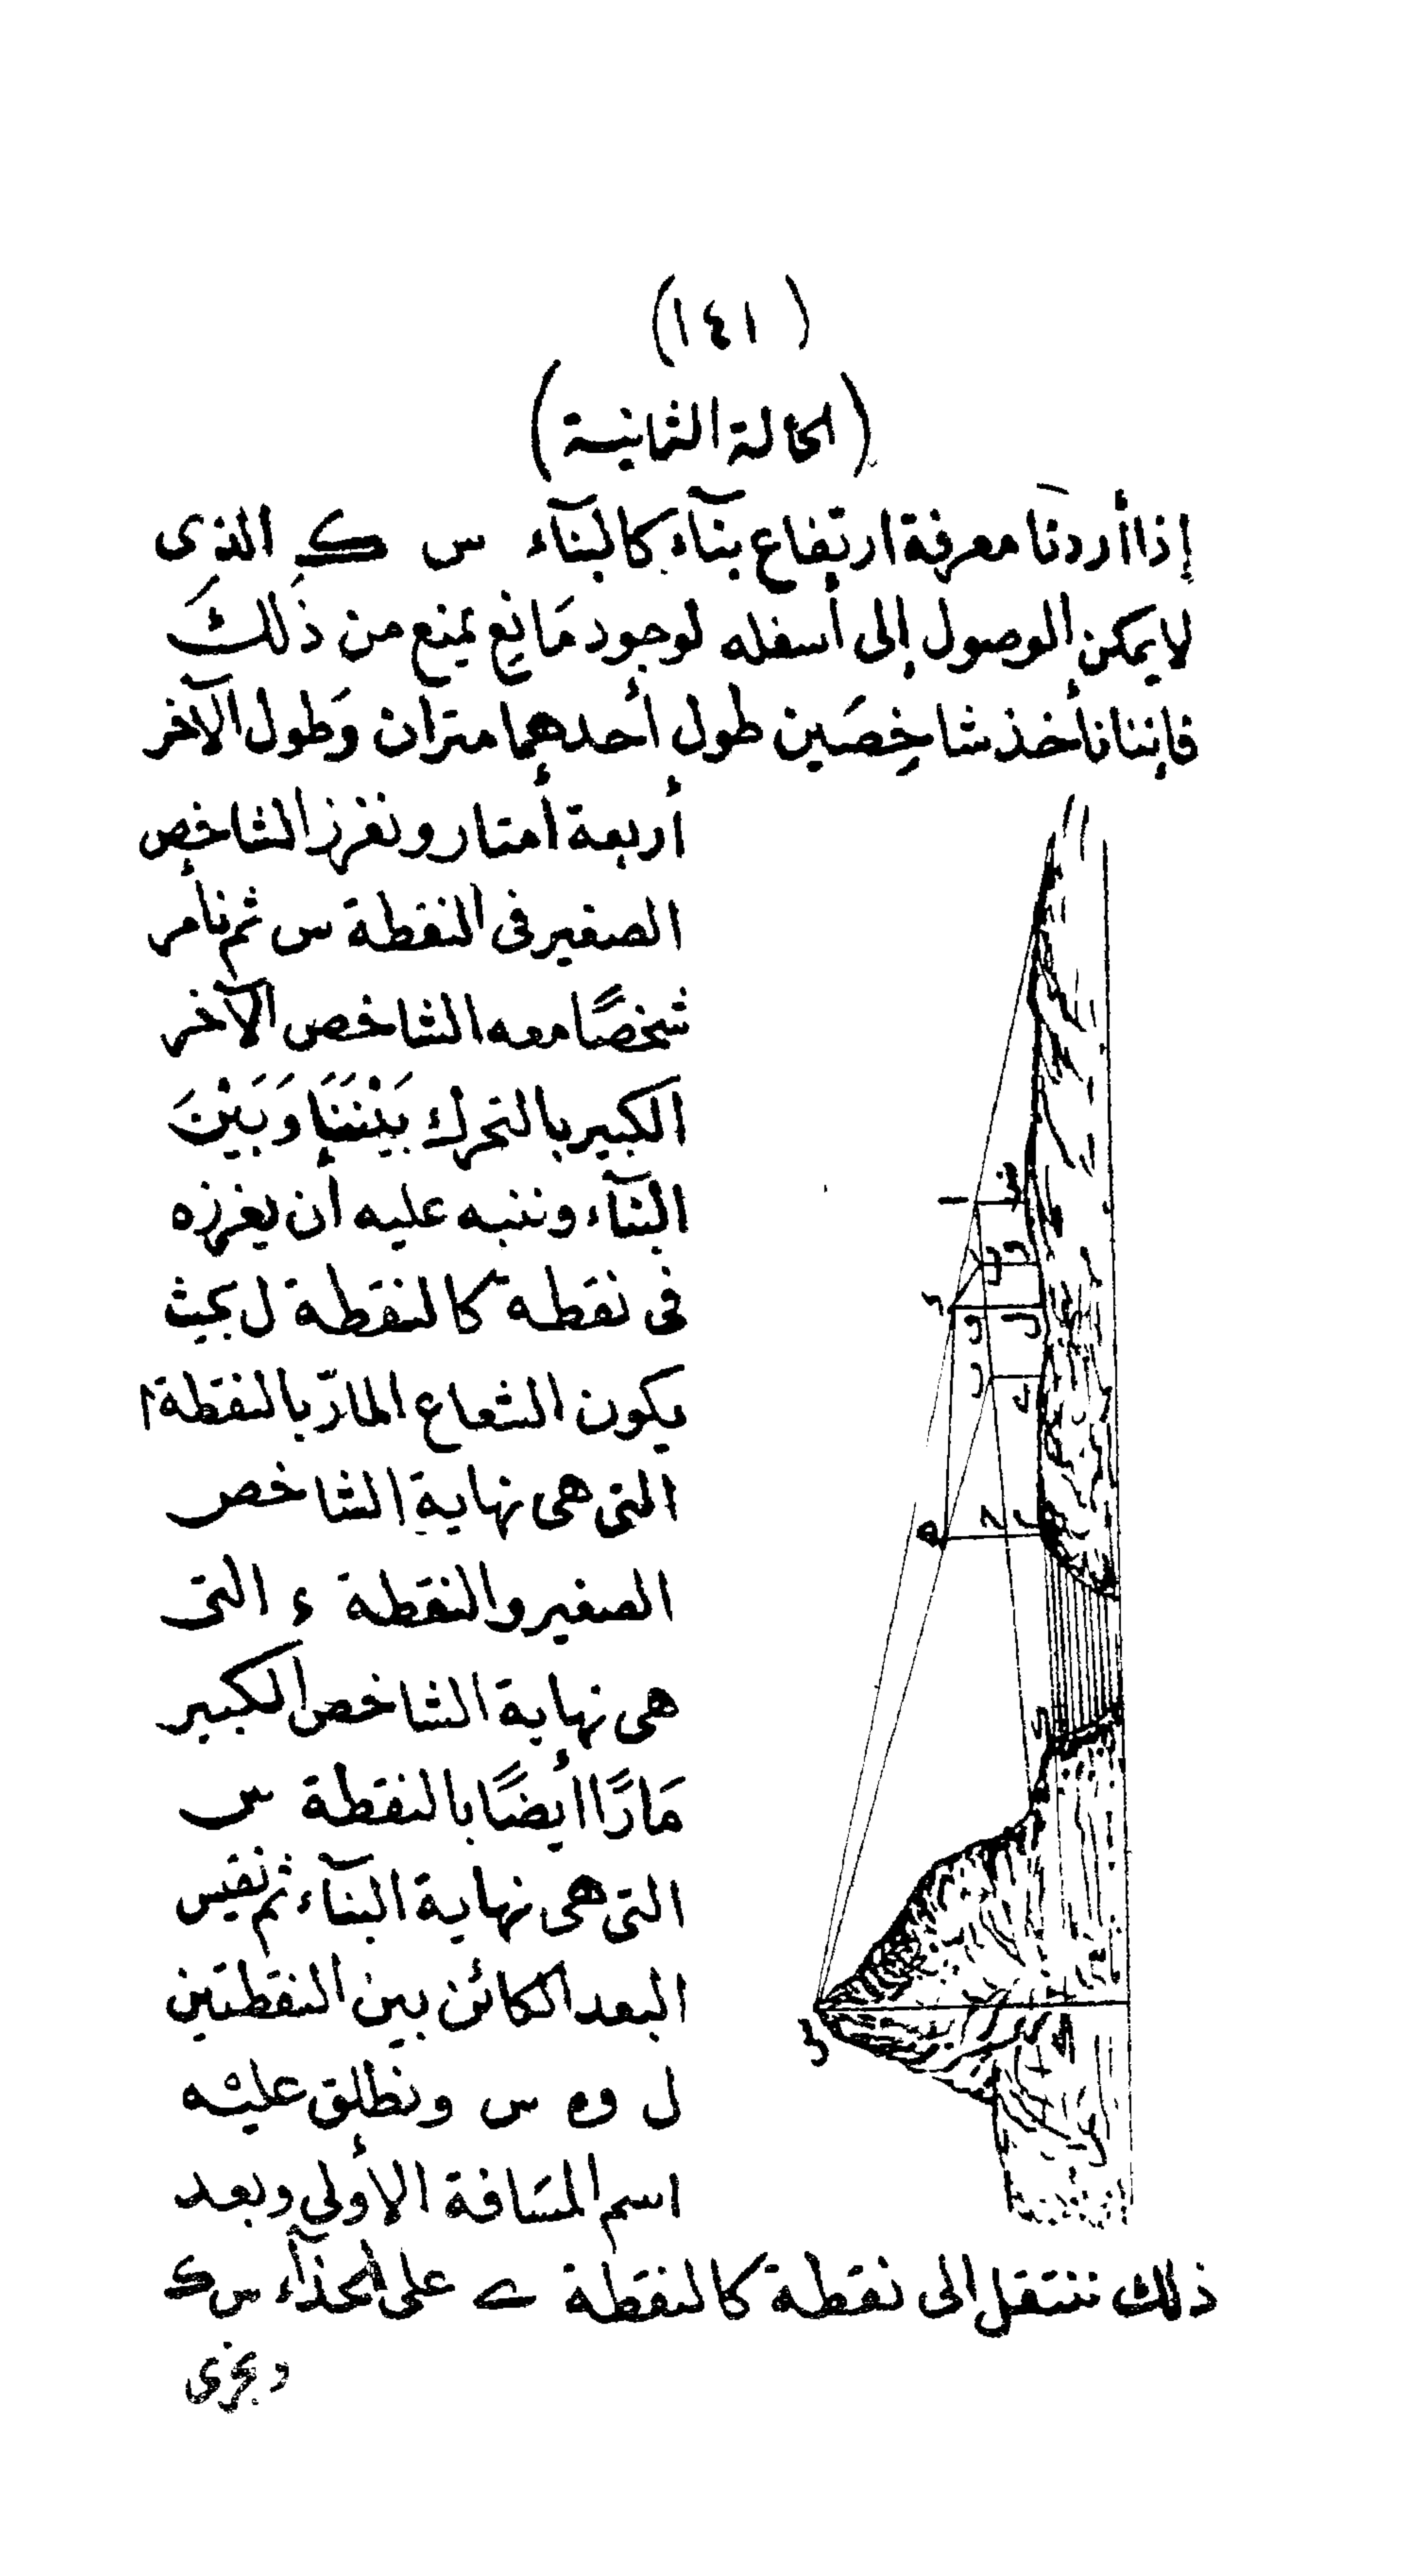 (١٤١)
(الحالة الثانية)
إذا أردنا معرفة ارتفاع بنآء كالبنآء س ك الذى
لا يمكن الوصول إلى أسفله لوجود مَانع يمنع من ذٰلكَ
فإننا نأخذ شاخِصَين طول أحدهما متران وَطول الآخر
أربعة أمتار ونغرز الشاخص
الصغير فى النقطة س ثم نأمر
شخصًا معه الشاخص الآخر
الكبير بالتحرك بَيْنَنَا وَبَيْنَ
البنآء وننبه عليه أن يغرزه
فى نقطة كالنقطة ل بحيث
يكون الشعاع المارّ بالنقطة ا
التى هى نهاية الشاخص
الصغير والنقطة ء التى
هى نهاية الشاخص الكبير
مَارًّا أيضًا بالنقطة س
التى هى نهاية البنآء ثم نقيس
البعد الكائن بين النقطتين
ل و س ونطلق عليْه
اسم المسَافة الأولى وبعد
ذلك ننتقل الى نقطة كالنقطة ے على الحذآء س ك
ونجرى